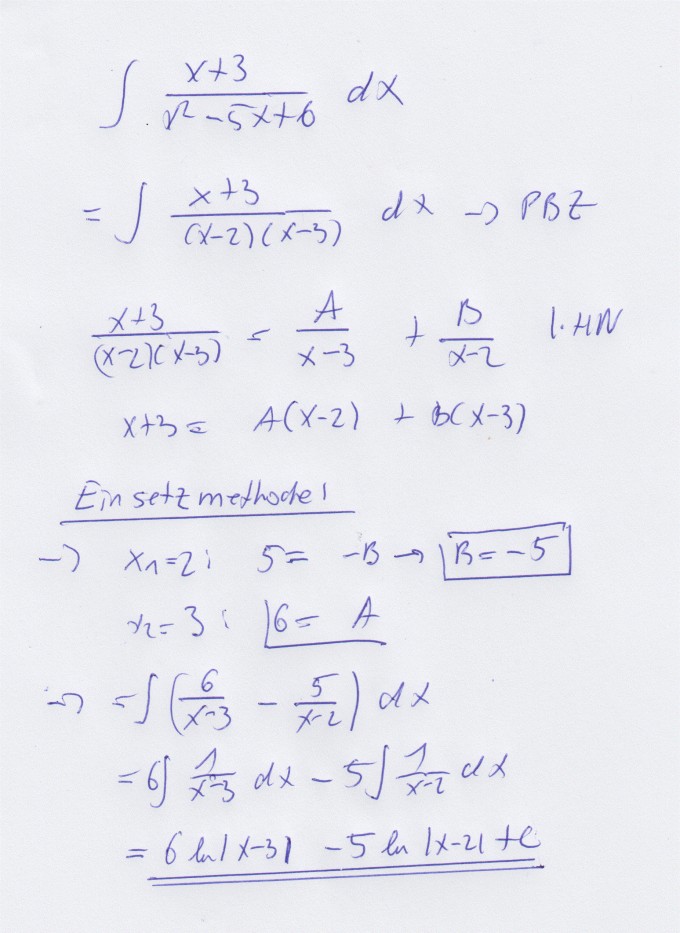 ∫ (x+3)/(x²-5x+6) dx
= ∫ (x+3)/((x-2)(x-3)) dx → PBZ
(x+3)/((x-2)(x-3)) = A/(x-3) + B/(x-2) |·HN
x+3 = A(x-2) + B(x-3)
Einsetzmethode:
→ x₁=2: 5= -B → B=-5
x₂=3: 6= A
⇒ =∫(6/(x-3) - 5/(x-2)) dx
=6∫ 1/(x-3) dx - 5∫ 1/(x-2) dx
= 6 ln|x-3| -5 ln |x-2| +C